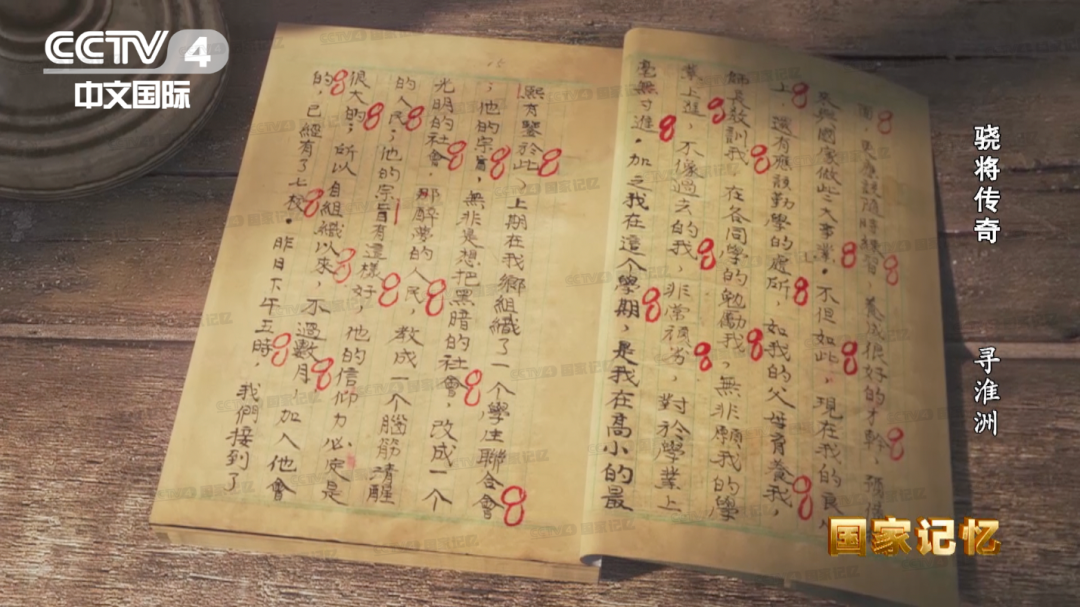 CCTV 4
中文国际
骁将传奇 寻淮洲
面，更應該隨時練習，養成很好的才幹，預備
來與國家做些大事業。不但如此，現在我的良
上，還有應該勤學的處所，如我的父母育養我，
師長教訓我，在各同學的勉勵我，無非願我的學
業上進，不像過去的我，非常頑劣，對於學業上
毫無寸進，加之我在這個學期，是我在高小的最
熙有鑒於此，上期在我鄉組織了一個學生聯合會
；他的宗旨，無非是想把黑暗的社會，改成一個
光明的社會，那醉夢的人民，教成一個腦筋清醒
的人民；他的宗旨有這樣好，他的信仰力必定是
很大的；所以自組織以來，不過數月，加入他會
的，已經有了七校。昨日下午五時，我們接到了
国家记忆